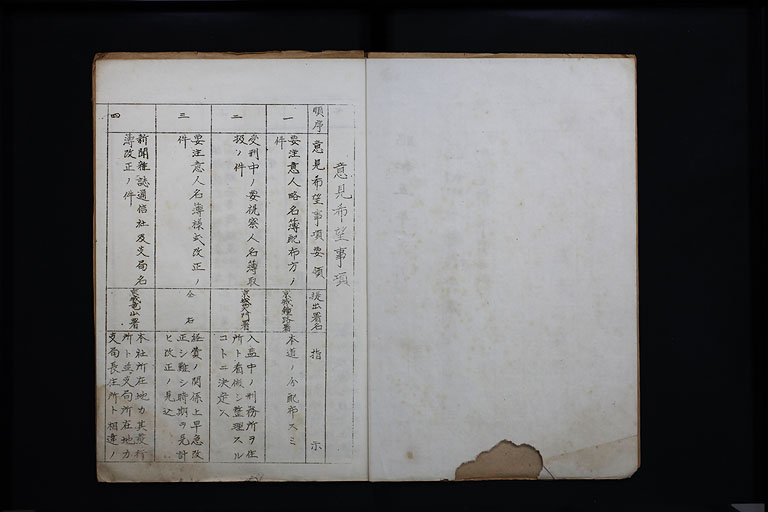 意見希望事項
順序 意見希望事項要領 提出署名 指示
一 要注意人略名簿配布方ノ
件
京城鍾路署
本道ノ分配布スミ
二 受刑中ノ要視察人名簿取
扱ノ件
京城西大門署
入監中ノ刑務所ヲ住
所ト看做シ整理スル
コトニ決定ス
三 要注意人名簿様式改正ノ
件
仝右
経費ノ関係上早急改
正シ難シ時期ヲ見計
ヒ改正ノ見込
四 新聞雑誌通信社及支局名
簿改正ノ件
京城竜山署
本社所在地カ其発行
所ト並支局所在地カ
支局長住所ト相違ノ